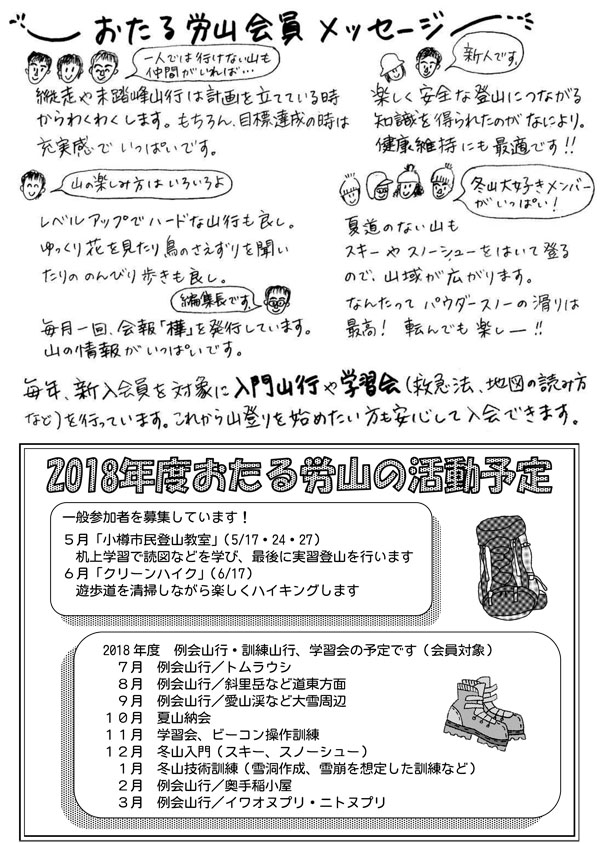 おたる労山会員メッセージ
一人では行けない山も
仲間がいれば…
縦走や未踏峰山行は計画を立てている時
からわくわくします。もちろん、目標達成の時は
充実感でいっぱいです。
新人です。
楽しく安全な登山につながる
知識を得られたのがなにより。
健康維持にも最適です!!
山の楽しみ方はいろいろよ
レベルアップでハードな山行も良し。
ゆっくり花を見たり鳥のさえずりを聞い
たりののんびり歩きも良し。
冬山大好きメンバー
がいっぱい!
夏道のない山も
スキーやスノーシューをはいて登る
ので、山域が広がります。
なんたってパウダースノーの滑りは
最高! 転んでも楽しー!!
編集長です。
毎月一回、会報「樺」を発行しています。
山の情報がいっぱいです。
毎年、新入会員を対象に入門山行や学習会(救急法、地図の読み方
など)を行っています。これから山登りを始めたい方も安心して入会できます。
2018年度おたる労山の活動予定
一般参加者を募集しています!
5月「小樽市民登山教室」(5/17・24・27)
机上学習で読図などを学び、最後に実習登山を行います
6月「クリーンハイク」(6/17)
遊歩道を清掃しながら楽しくハイキングします
2018年度 例会山行・訓練山行、学習会の予定です(会員対象)
7月 例会山行/トムラウシ
8月 例会山行/斜里岳など道東方面
9月 例会山行/愛山渓など大雪周辺
10月 夏山納会
11月 学習会、ビーコン操作訓練
12月 冬山入門(スキー、スノーシュー)
1月 冬山技術訓練(雪洞作成、雪崩を想定した訓練など)
2月 例会山行/奥手稲小屋
3月 例会山行/イワオヌプリ・ニトヌプリ